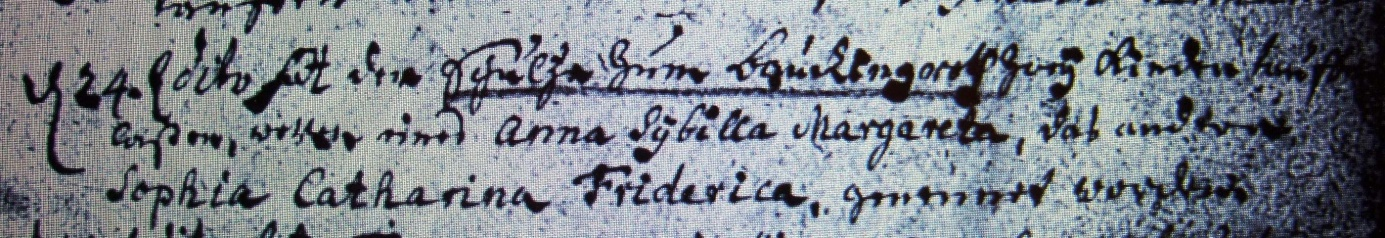 24. dito hat der Schultze zum Bruckengorst zwey Kinder tauffen
laßen, wovon eines Anna Sybilla Margareta, das andere
Sophia Catharina Friderica, genennet worden